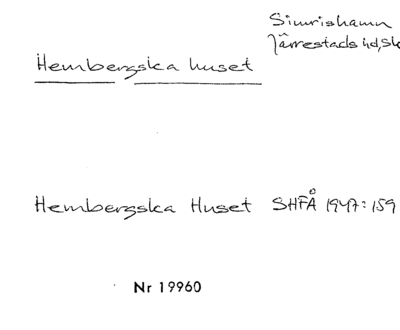 Simrishamn
Järrestads hd, Sk
Hembergska huset
Hembergska Huset SHFÅ 1947:159
Nr 19960